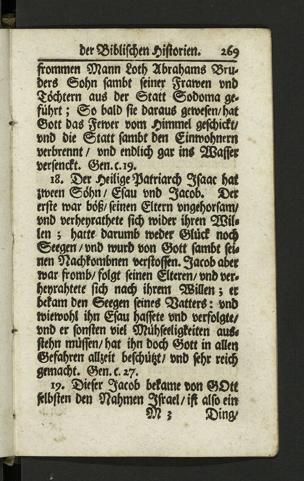 der Biblischen Historien. 269
frommen Mann Loth Abrahams Bru-
ders Sohn sambt seiner Frawen vnd
Töchtern aus der Statt Sodoma ge-
führt; So bald sie daraus gewesen/hat
Gott das Fewer vom Himmel geschickt/
vnd die Statt sambt den Einwohnern
verbrennt/ vnd endlich gar ins Wasser
versenckt. Gen.c.19.
18. Der Heilige Patriarch Isaac hat
zween Söhn/ Esau vnd Jacob. Der
erste war böß/ seinen Eltern vngehorsam/
vnd verheyrathete sich wider ihren Wil-
len; hatte darumb weder Glück noch
Seegen/ vnd wurd von Gott sambt sei-
nen Nachkombnen verstossen. Jacob aber
war fromb/ folgt seinen Elteren/ vnd ver-
heyrahtete sich nach ihrem Willen; er
bekam den Seegen seines Vatters: vnd
wiewohl ihn Esau hassete vnd verfolgte/
vnd er sonsten viel Mühseeligkeiten aus-
stehn müssen/ hat ihn doch Gott in allen
Gefahren allzeit beschützt/ vnd sehr reich
gemacht. Gen.c.27.
19. Dieser Jacob bekame von GOtt
selbsten den Nahmen Israel/ ist also ein
M 3 Ding/